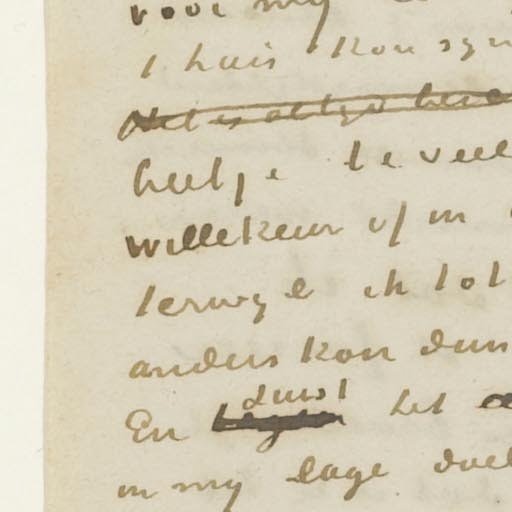 voor my
t huis kon zyn
Het is altyd
beetje te veel
willekeur of in
terwyl ik tot
anders kon dan
En durst het
in my lage doel